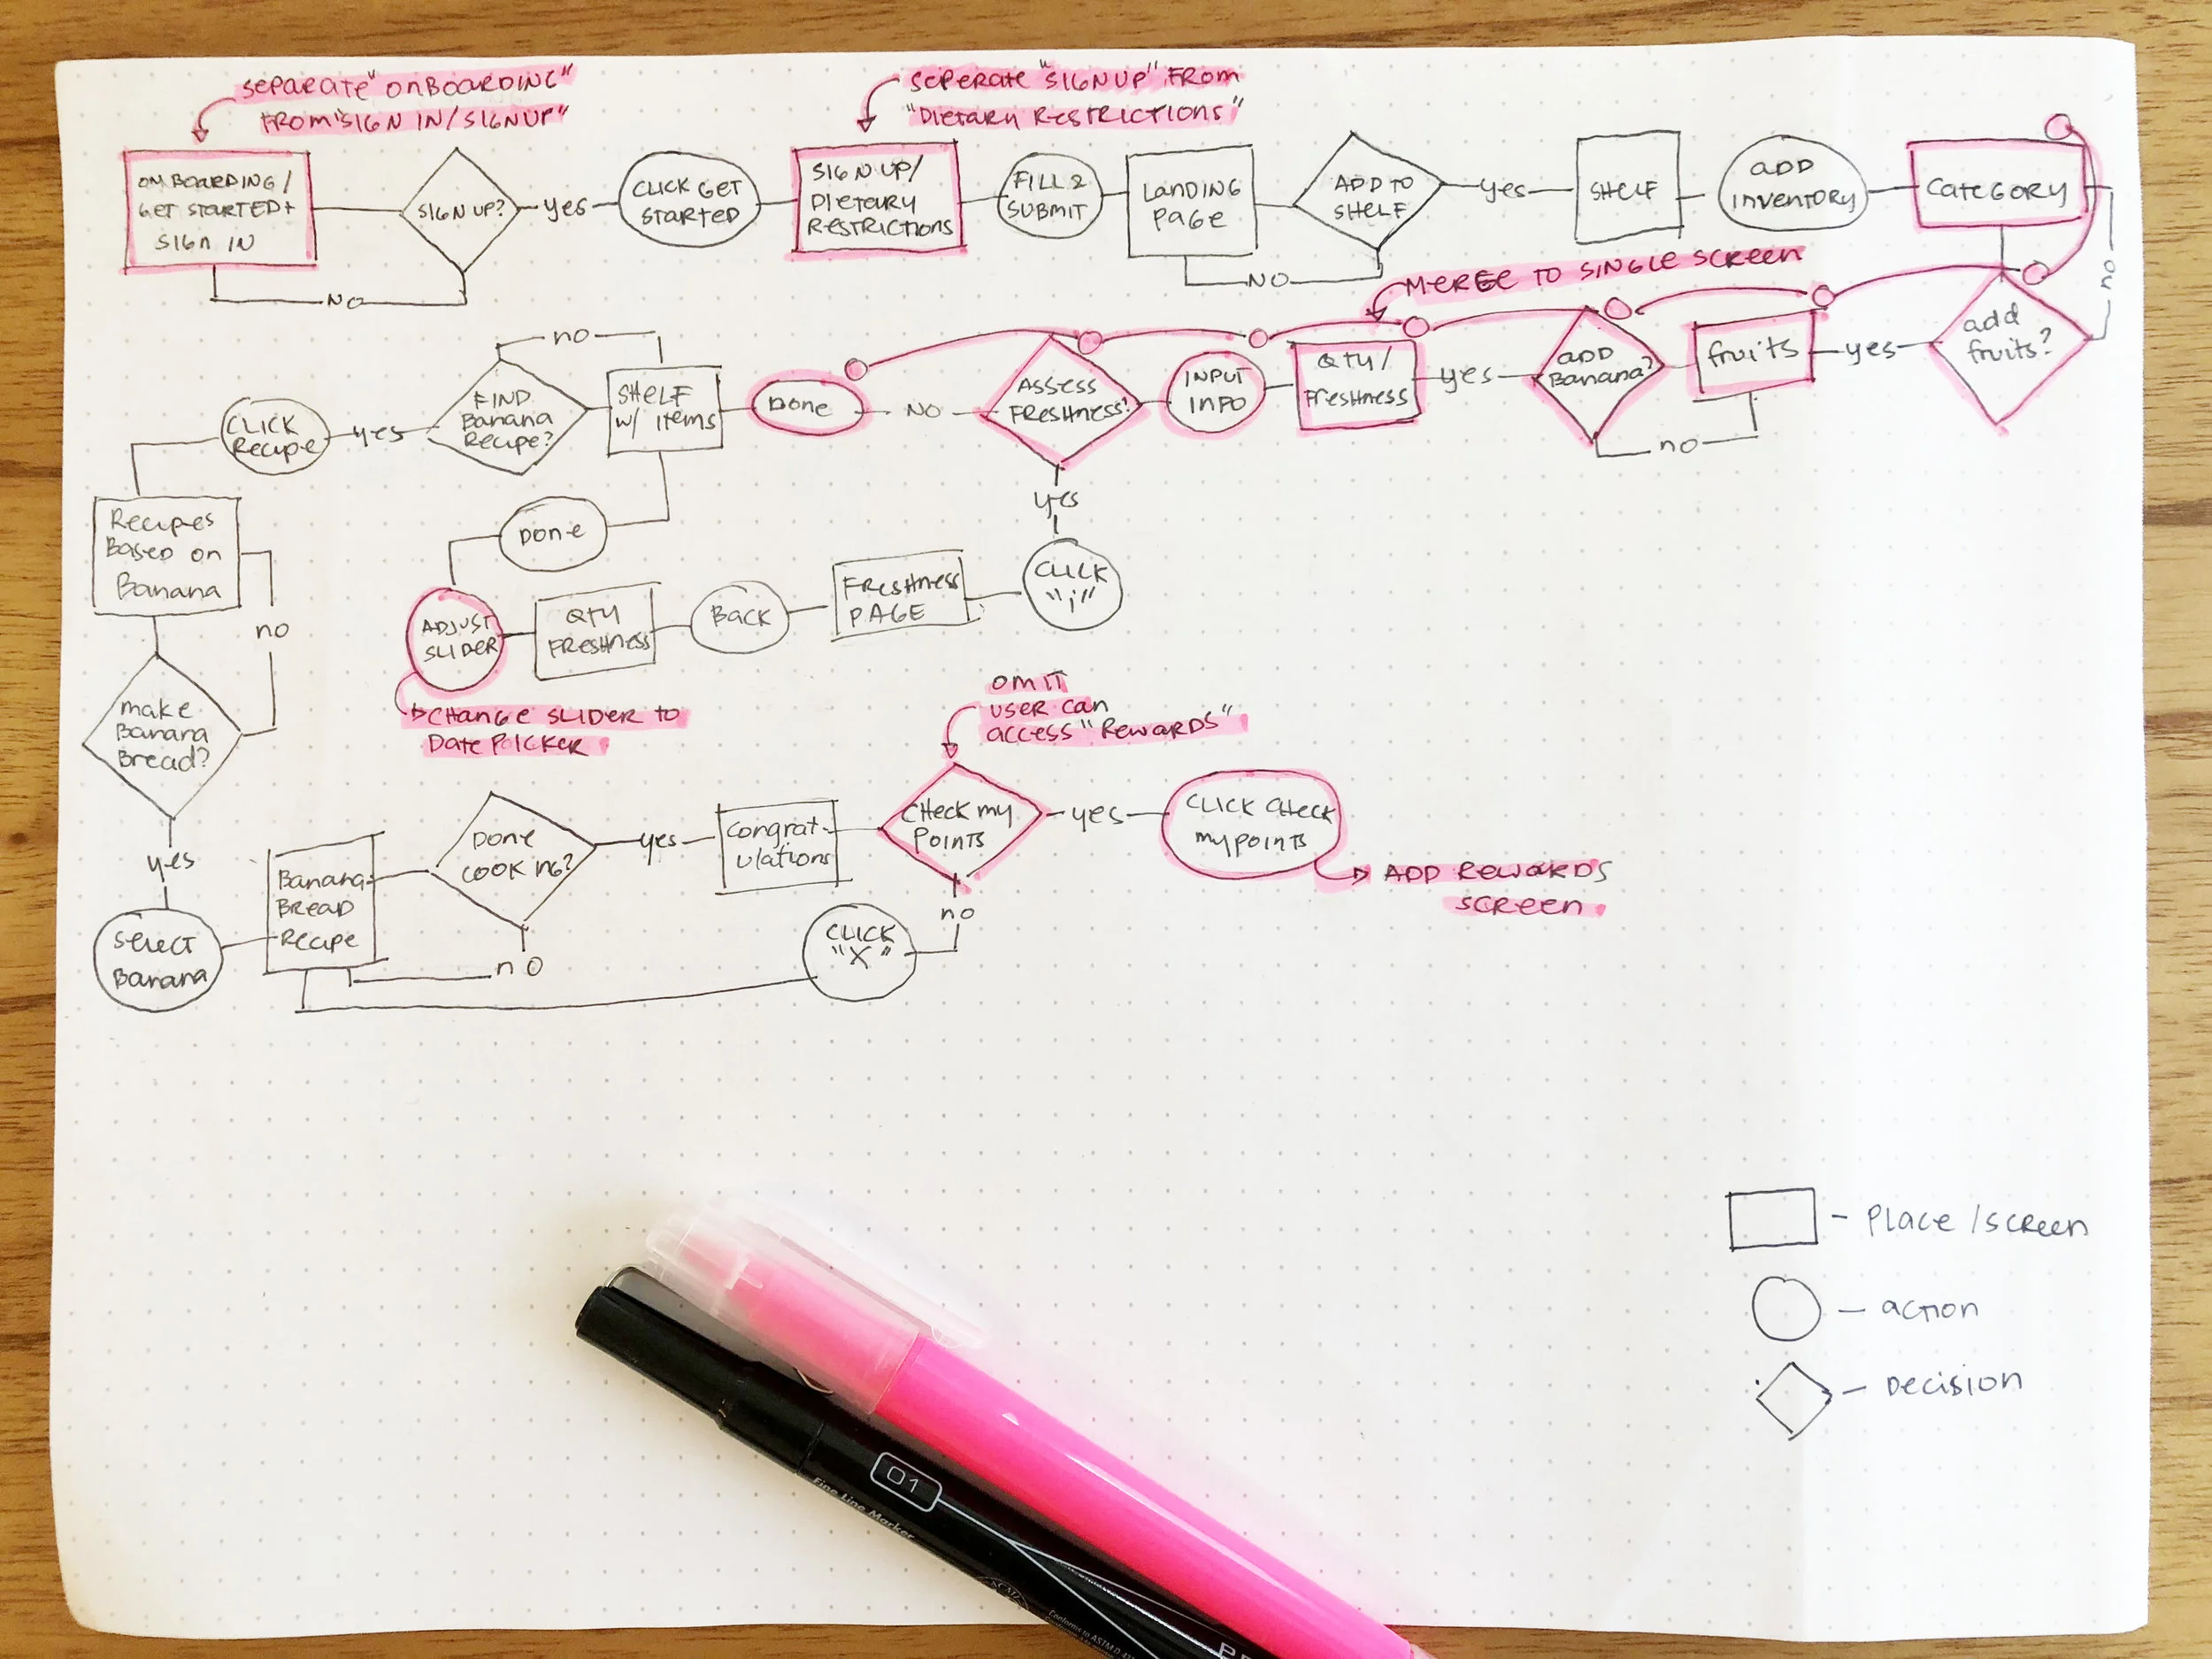 SEPARATE "ONBOARDING"
FROM "SIGN IN/SIGNUP"
SEPERATE "SIGN UP" FROM
"DIETARY RESTRICTIONS"
ONBOARDING /
GET STARTED +
SIGN IN
SIGN UP?
yes
NO
CLICK GET
STARTED
SIGN UP/
DIETARY
RESTRICTIONS
FILL 2
SUBMIT
LANDING
PAGE
ADD TO
SHELF
NO
yes
SHELF
ADD
INVENTORY
CATEGORY
no
MERGE TO SINGLE SCREEN
add
fruits?
yes
fruits
ADD
Banana?
no
yes
QTY /
FRESHNESS
INPUT
INFO
ASSESS
FRESHNESS?
NO
Done
SHELF
W/ ITEMS
no
FIND
Banana
Recipe?
yes
CLICK
Recipe
yes
CLICK
"i"
FRESHNESS
PAGE
BACK
QTY
FRESHNESS
ADJUST
SLIDER
DONE
CHANGE SLIDER TO
DATE PICKER
Recipes
Based on
Banana
no
make
Banana
Bread?
yes
Select
Banana
Banana
BREAD
Recipe
DONE
COOKING?
no
yes
Congrat-
ulations
OMIT
USER CAN
ACCESS "REWARDS"
CHECK MY
POINTS
yes
CLICK CHECK
MY POINTS
ADD REWARDS
SCREEN
no
CLICK
"X"
- PLACE / SCREEN
- action
- DECISION
01
Fine Line Marker